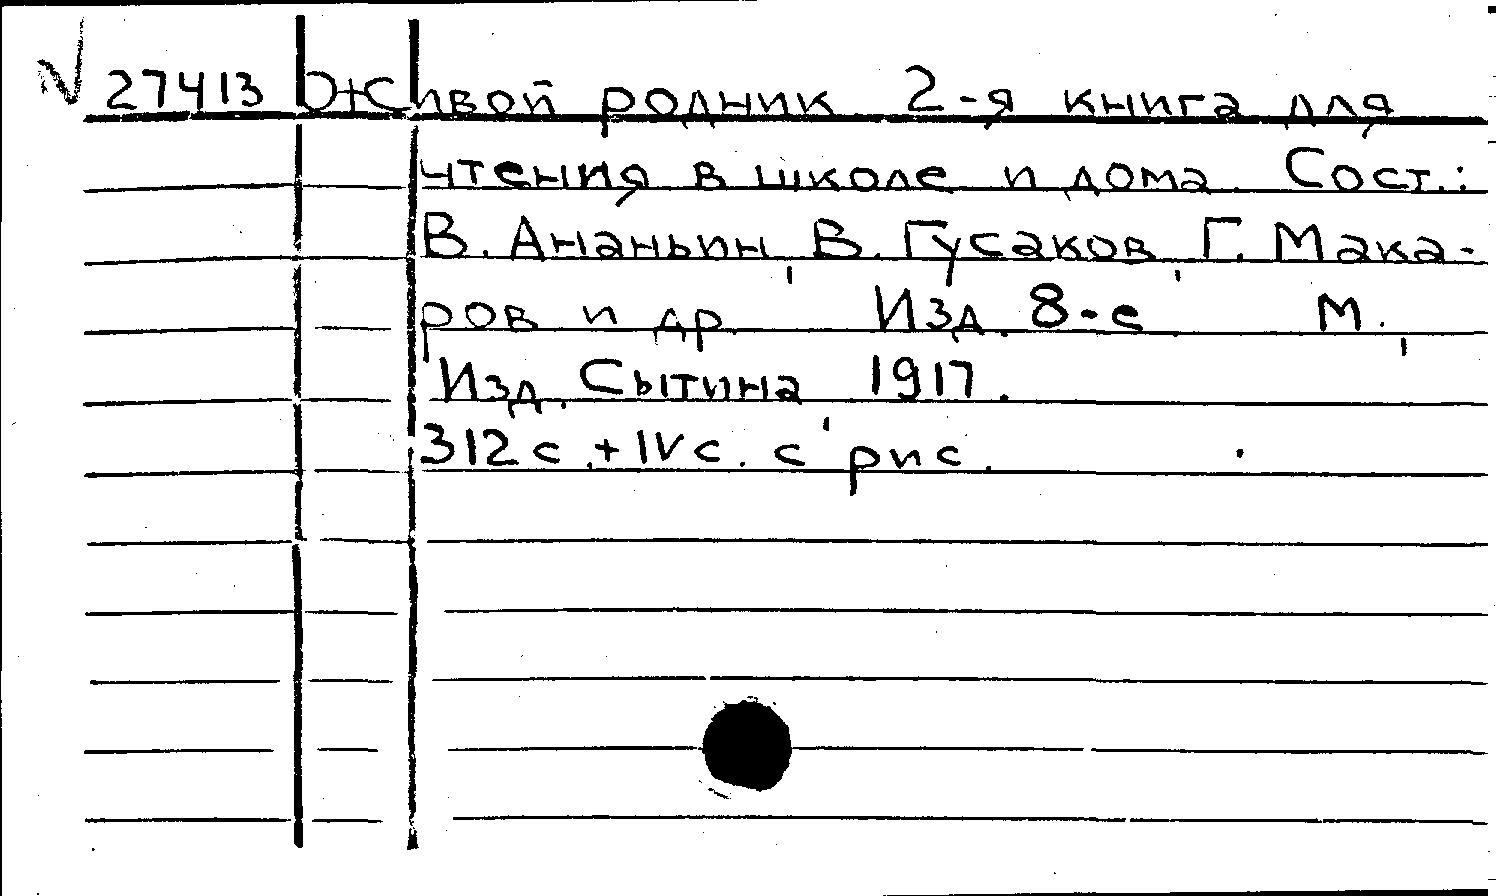 27413 Живой родник 2-я книга для
чтения в школе и дома. Сост.:
В. Ананьин, В. Гусаков, Г. Мака-
ров и др. Изд. 8-е М.,
Изд. Сытина, 1917.
312 с. + IV с. с рис.